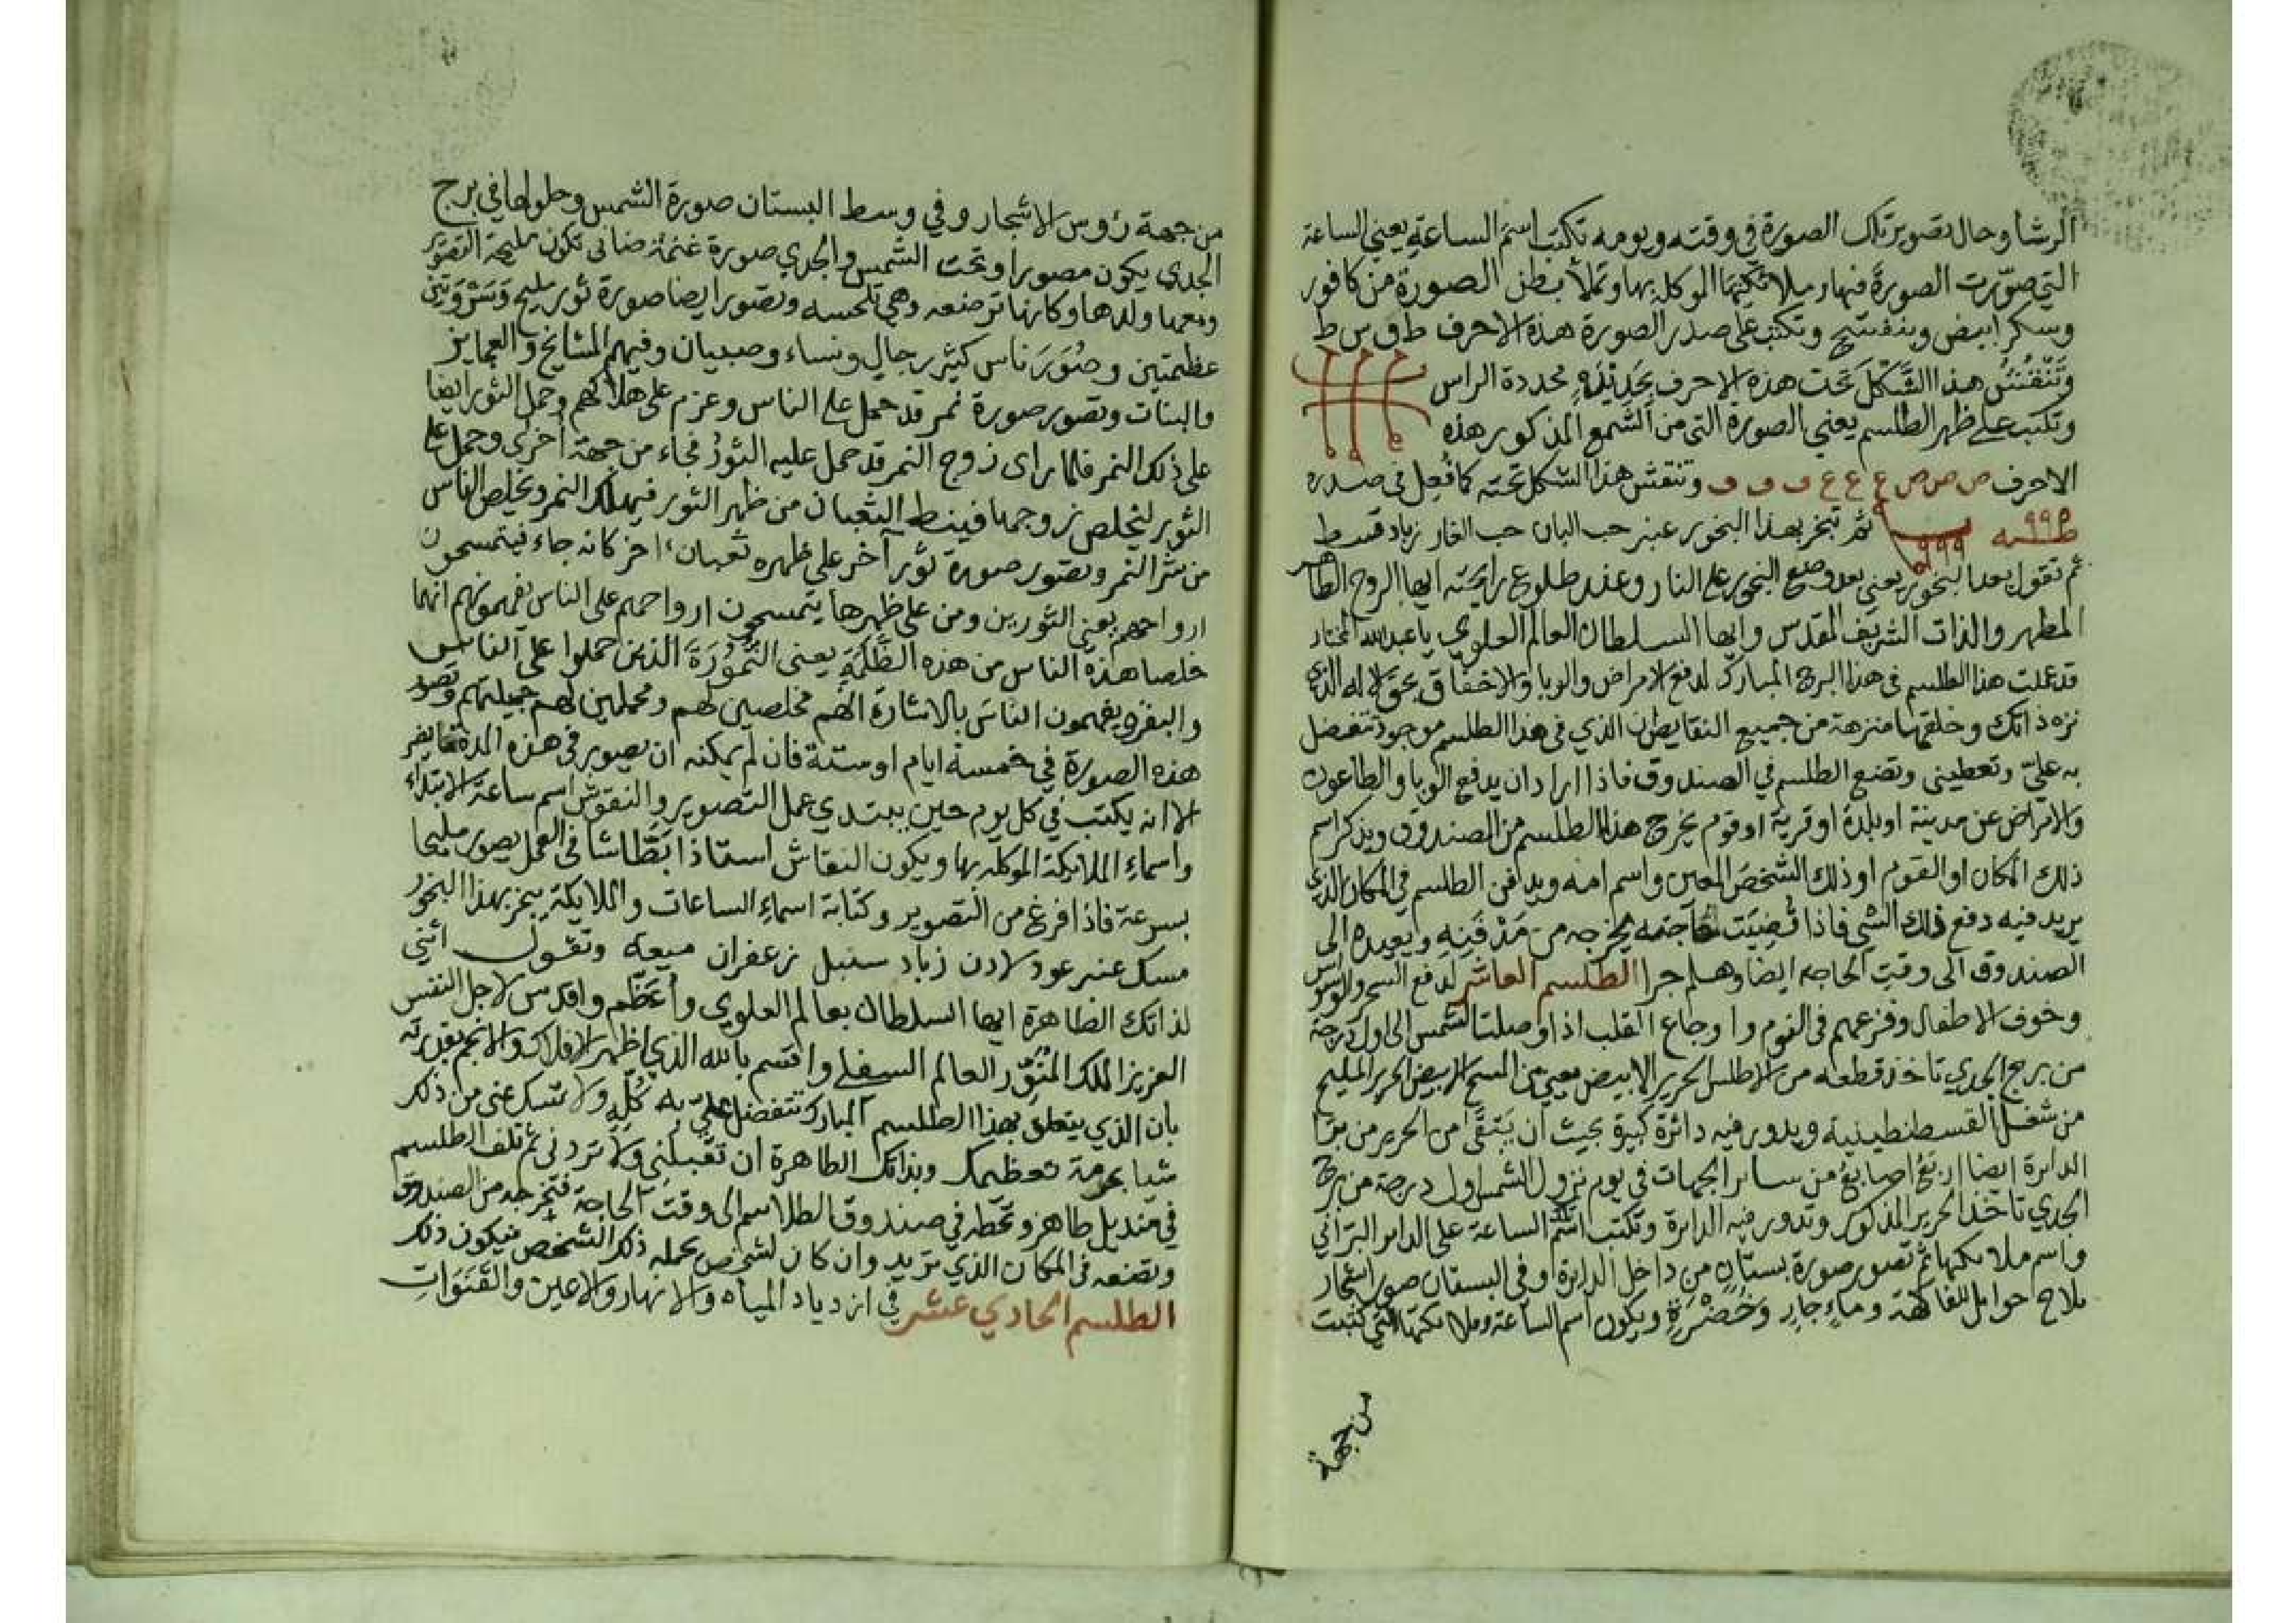 الرشا وحال تصوير تلك الصورة في وقته ويومه تكتب اسم الساعة يعني الساعة
التي صوّرت الصورة فيها وملائكتها الموكله بها وتملأ بطن الصورة من كافور
وسكر ابيض وبنفسج وتكتب على صدر الصورة هذه الاحرف ط ق س ط
وتنقش هذا الشكل تحت هذه الاحرف بحديدة محددة الراس
وتكتب على ظهر الطلسم يعني الصورة التي من الشمع المذكور هذه
الاحرف ص ص ص ع ع ع ف ف ف وتنقش هذا الشكل تحته كما فعل في صدره
ثم تبخر بهذا البخور عنبر حب البان حب الغار زباد قسط
ثم تقول بعد البخور يعني بعد وضع البخور على النار وعند طلوع رايحته ايها الروح الطاهر
المطهر والذات الشريف المقدس وايها السلطان العالم العلوي يا عبد الله المختار
قد عملت هذا الطلسم في هذا البرج المبارك لدفع الامراض والوبا والاخفاق بحق الاله الذي
نزه ذاتك وخلقها منزهة من جميع النقايص ان الذي في هذا الطلسم موجود تتفضل
به عليّ وتعطيني وتضع الطلسم في الصندوق فاذا اراد ان يدفع الوبا والطاعون
والامراض عن مدينة او بلدة او قرية او قوم يخرج هذا الطلسم من الصندوق ويذكر اسم
ذلك المكان او القوم او ذلك الشخص المعين واسم امه ويدفن الطلسم في المكان الذي
يريد فيه دفع ذلك الشي فاذا قضيت حاجته يخرجه من مدفنه ويعيده الى
الصندوق الى وقت الحاجه ايضا وهلم جرا الطلسم العاشر لدفع السحر والوسواس
وخوف الاطفال وفزعهم في النوم واوجاع القلب اذا وصلت الشمس الى اول درجة
من برج الجدي تاخذ قطعه من الاطلس الحرير الابيض يعني من النسج الابيض الحرير المليح
من شغل القسطنطينية ويدور فيه دائرة كبيرة بحيث ان يتبقى من الحرير من برا
الدايرة ايضا اربع اصابع من ساير الجهات في يوم نزول الشمس اول درجة من برج
الجدي تاخذ الحرير المذكور وتدور فيه الدايرة وتكتب اسم الساعة على الداير البرّاني
واسم ملايكتها ثم تصور صورة بستان من داخل الدايرة وفي البستان صور اشجار
ملاح حوامل للفاكهة وماء جار وخضرة ويكون اسم الساعة وملايكتها التي كتبت
من جهة
من جهة رؤس الاشجار وفي وسط البستان صورة الشمس وحلولها في برج
الجدي يكون مصورا وتحت الشمس والجدي صورة غنمة ضاني تكون مليحة التصوير
ومعها ولدها وكانها ترضعه وهي تلحسه وتصور ايضا صورة ثور مليح
عظيمتين وصور ناس كثير رجال ونساء وصبيان وفيهم المشايخ والعجايز
والبنات وتصور صورة نمر قد حمل على الناس وعزم على هلاكهم وحمل الثور ايضا
على ذلك النمر فلما راى زوج النمر قد حمل عليه الثور فجاء من جهة اخرى وحمل على
الثور ليخلص زوجها فينط الثعبان من ظهر الثور فيهلك النمر وتخلص الناس
من شر النمر وتصور صورة ثور آخر على ظهره ثعبان آخر كانه جاء فيتمسحون
ارواحهم يعني الثورين ومن على ظهرها يتمسحون ارواحهم على الناس يفهمونهم انهما
خلصا هذه الناس من هذه الظلمة يعني النمورة الذين حملوا على الناس
والبقر يفهمون الناس بالاشارة انهم مخلصين لهم ومحملين لهم جميلتهم وتصور
هذه الصورة في خمسة ايام او ستة فان لم يمكنه ان يصور في هذه المدة فما يضر
الا انه يكتب في كل يوم حين يبتدي عمل التصوير والنقوش اسم ساعة الابتداء
واسماء الملايكة الموكله بها ويكون النقاش استاذا بطّاشا في العمل يصور مليحا
بسرعة فاذا فرغ من التصوير وكتابة اسماء الساعات والملايكة يبخر بهذا البخور
مسك عنبر عود لادن زباد سنبل زعفران ميعه وتقول اثني
لذاتك الطاهرة ايها السلطان بعالم العلوي وأعظّم واقدس لاجل النفس
العزيز الملك المنوّر العالم السفلي واقسم بالله الذي اظهر الافلاك والانجم بقدرته
بان الذي يتعلق بهذا الطلسم المبارك تتفضل عليّ به كله ولا تمسك عني من ذلك
شيا بحرمة تعظيمك وبذاتك الطاهرة ان تقبلني ولا تردني ثم تلف الطلسم
في منديل طاهر وتحطه في صندوق الطلاسم الى وقت الحاجة فتخرجه من الصندوق
وتضعه في المكان الذي تريد وان كان لشخص يحمله ذلك الشخص فيكون ذلك
الطلسم الحادي عشر في ازدياد المياه والانهار والاعين والقنوات